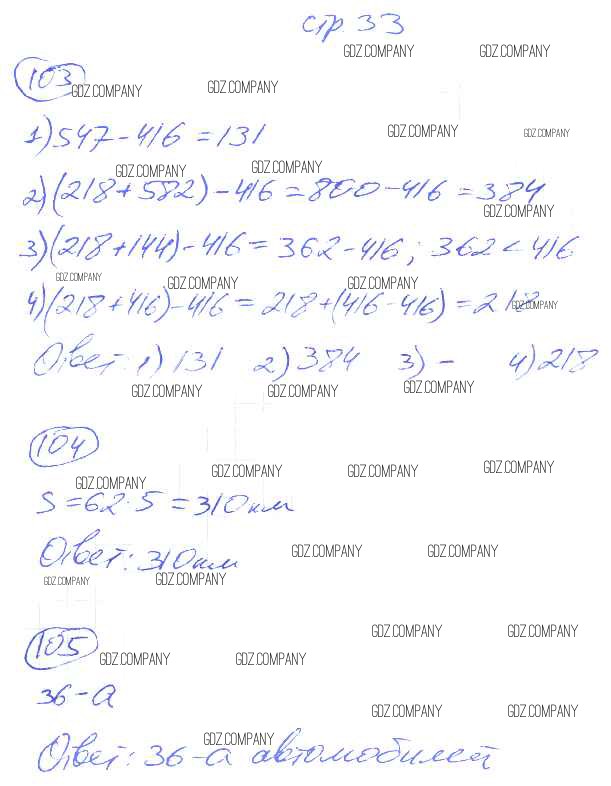 стр 33
GDZ.COMPANY GDZ.COMPANY
103
GDZ.COMPANY GDZ.COMPANY
1) 547 - 416 = 131
GDZ.COMPANY GDZ.COMPANY
GDZ.COMPANY GDZ.COMPANY
2) (218 + 582) - 416 = 800 - 416 = 384
GDZ.COMPANY
3) (218 + 144) - 416 = 362 - 416; 362 < 416
GDZ.COMPANY GDZ.COMPANY GDZ.COMPANY
4) (218 + 416) - 416 = 218 + (416 - 416) = 218
GDZ.COMPANY
Ответ: 1) 131 2) 384 3) - 4) 218
GDZ.COMPANY GDZ.COMPANY GDZ.COMPANY
104
GDZ.COMPANY GDZ.COMPANY GDZ.COMPANY GDZ.COMPANY
S = 62 · 5 = 310 км
GDZ.COMPANY GDZ.COMPANY
Ответ: 310 км
GDZ.COMPANY GDZ.COMPANY
105
GDZ.COMPANY GDZ.COMPANY
GDZ.COMPANY GDZ.COMPANY
36 - а
GDZ.COMPANY GDZ.COMPANY
GDZ.COMPANY
Ответ: 36 - а автомобилей